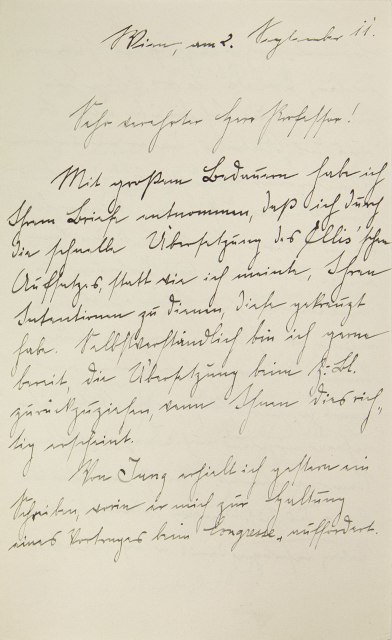 Wien, am 2. September 11.
Sehr verehrter Herr Professor!
Mit großem Bedauern habe ich
Ihrem Briefe entnommen, daß ich durch
die schnelle Übersetzung des Ellis'schen
Aufsatzes, statt wie ich meinte, Ihren
Intentionen zu dienen, diese gekreuzt
habe. Selbstverständlich bin ich gerne
bereit, die Übersetzung beim Z. Bl.
zurückzuziehen, wenn Ihnen dies rich-
tig erscheint.
Von Jung erhielt ich gestern ein
Schreiben, worin er mich zur Haltung
eines Vortrages beim Congresse auffordert.